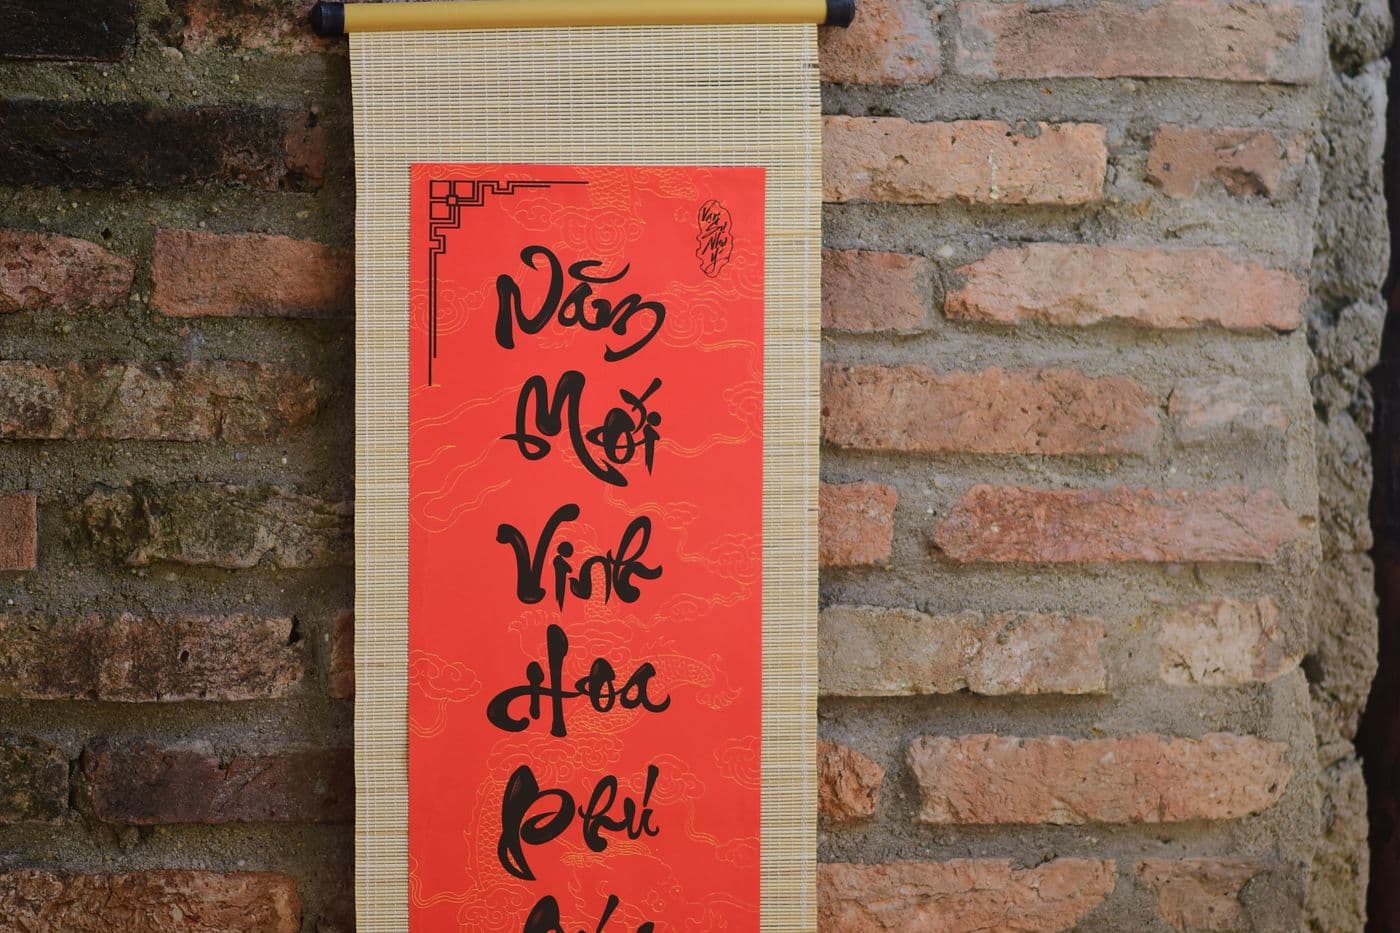 Vạn
Sự
Như
Ý
Năm
Mới
Vinh
Hoa
Phú